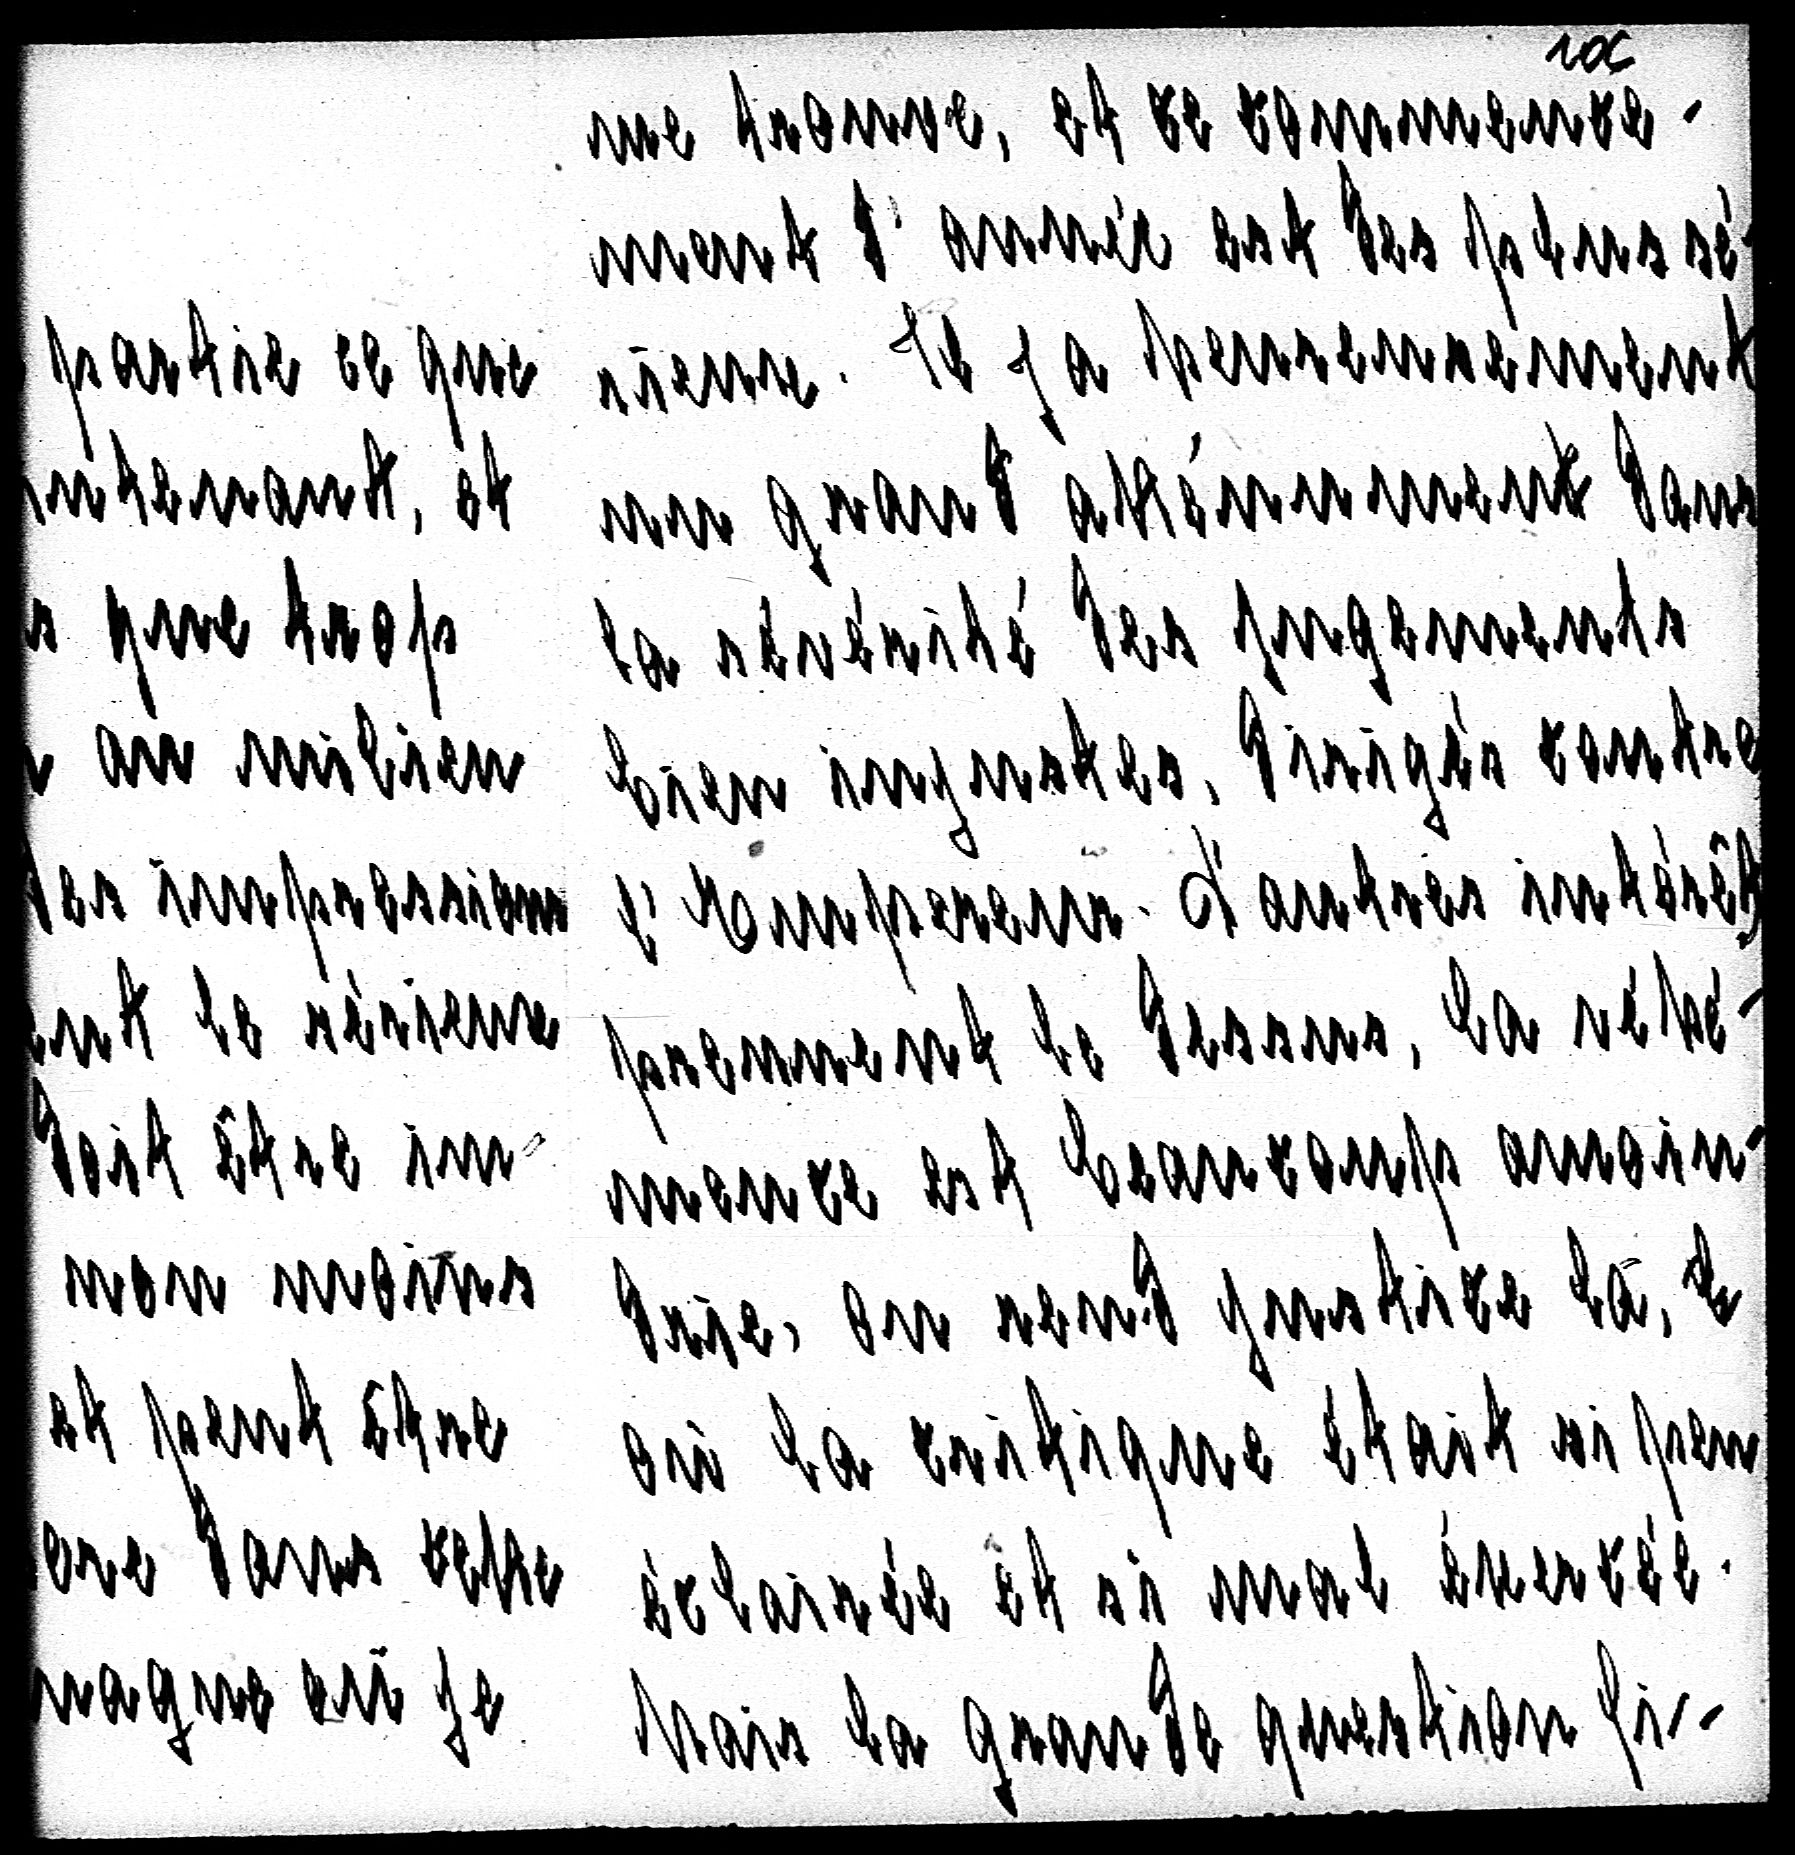 partie ce que
intenant, et
s que trop
au milieu
des impressions
ent le sérieux
doit être im-
non moins
et peut être
ere dans cette
nagne où je
me trouve, et ce commence-
ment d'année est des plus sé-
rieux. Il y a heureusement
un grand atténuement dans
la sévérité des jugements
bien injustes, dirigés contre
l'Empereur. D'autres intérêts
prennent le dessus, la véhé-
mence est beaucoup amoin-
drie, on rend justice là,
où la critique était si peu
éclairée et si mal éxercée.
Mais la grande question fi-